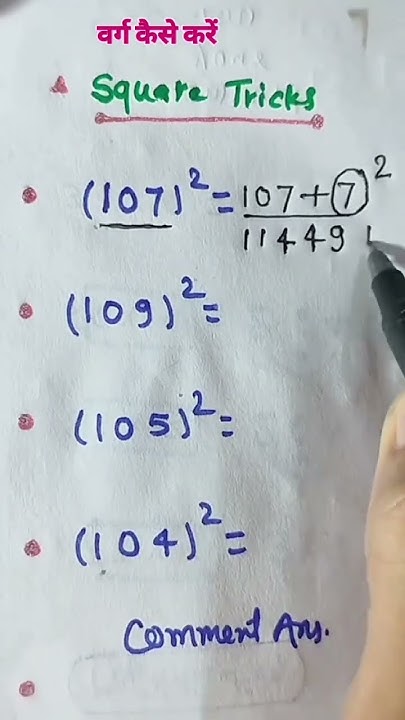 वर्ग कैसे करें
Square Tricks
(107)² = 107+7²
11449
(109)² =
(105)² =
(104)² =
Comment Ans.